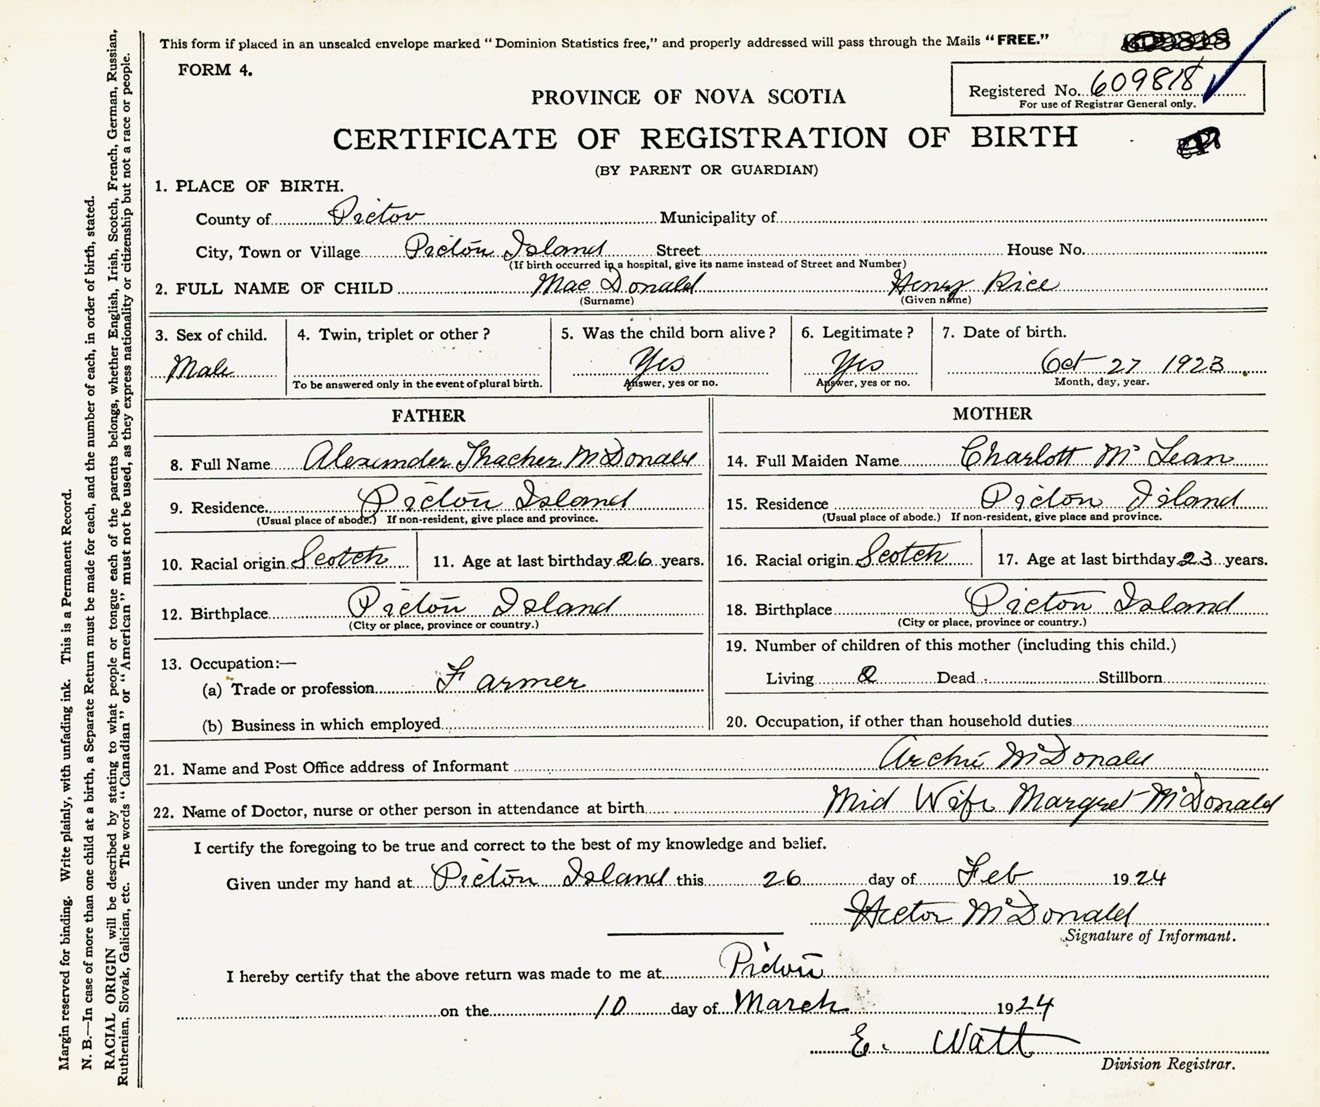 This form if placed in an unsealed envelope marked "Dominion Statistics free," and properly addressed will pass through the Mails "FREE."
FORM 4.
Registered No. 609818
For use of Registrar General only.
PROVINCE OF NOVA SCOTIA
CERTIFICATE OF REGISTRATION OF BIRTH
(BY PARENT OR GUARDIAN)
1. PLACE OF BIRTH.
County of Pictou Municipality of
City, Town or Village Pictou Island Street House No.
(If birth occurred in a hospital, give its name instead of Street and Number)
2. FULL NAME OF CHILD Mac Donald Henry Rice
(Surname) (Given name)
3. Sex of child. 4. Twin, triplet or other? 5. Was the child born alive? 6. Legitimate? 7. Date of birth.
Male Yes Yes Oct 27 1923
To be answered only in the event of plural birth. Answer, yes or no. Answer, yes or no. Month, day, year.
FATHER MOTHER
8. Full Name Alexander Thacher McDonald 14. Full Maiden Name Charlott Mc Lean
9. Residence Pictou Island 15. Residence Pictou Island
(Usual place of abode.) If non-resident, give place and province. (Usual place of abode.) If non-resident, give place and province.
10. Racial origin Scotch 11. Age at last birthday 26 years. 16. Racial origin Scotch 17. Age at last birthday 23 years.
12. Birthplace Pictou Island 18. Birthplace Pictou Island
(City or place, province or country.) (City or place, province or country.)
19. Number of children of this mother (including this child.)
13. Occupation:—
(a) Trade or profession Farmer Living 2 Dead Stillborn
(b) Business in which employed 20. Occupation, if other than household duties
21. Name and Post Office address of Informant Archie McDonald
22. Name of Doctor, nurse or other person in attendance at birth Mid Wife Margret McDonald
I certify the foregoing to be true and correct to the best of my knowledge and belief.
Given under my hand at Pictou Island this 26 day of Feb 1924
Hector McDonald
Signature of Informant.
I hereby certify that the above return was made to me at Pictou
on the 10 day of March 1924
E. Watt
Division Registrar.
Margin reserved for binding. Write plainly, with unfading ink. This is a Permanent Record.
N. B.—In case of more than one child at a birth, a Separate Return must be made for each, and the number of each, in order of birth, stated.
RACIAL ORIGIN will be described by stating to what people or tongue each of the parents belongs, whether English, Irish, Scotch, French, German, Russian,
Ruthenian, Slovak, Galician, etc. The words "Canadian" or "American" must not be used, as they express nationality or citizenship but not a race or people.